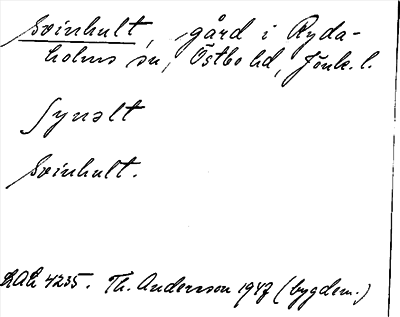 Svinhult, gård i Ryda-
holms sn, Östbo hd, Jönk. l.
Synəlt
Svinhult.
4235. Th. Andersson 1947 (bygdem.)